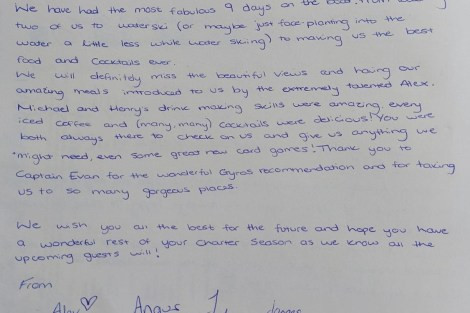 We have had the most fabulous 9 days on the boat. From
two of us to waterski (or maybe just face-planting into the
water a little less while water skiing) to making us the best
food and Cocktails ever.
We will definitely miss the beautiful views and having our
amazing meals introduced to us by the extremely talented Alex.
Michael and Henry's drink making skills were amazing, every
iced coffee and (many, many) cocktails were delicious! You were
both always there to check on us and give us anything we
might need, even some great new card games! Thank you to
Captain Evan for the wonderful Gyros recommendation and for taking
us to so many gorgeous places.
We wish you all the best for the future and hope you have
a wonderful rest of your Charter Season as we know all the
upcoming guests will!
From
Angus